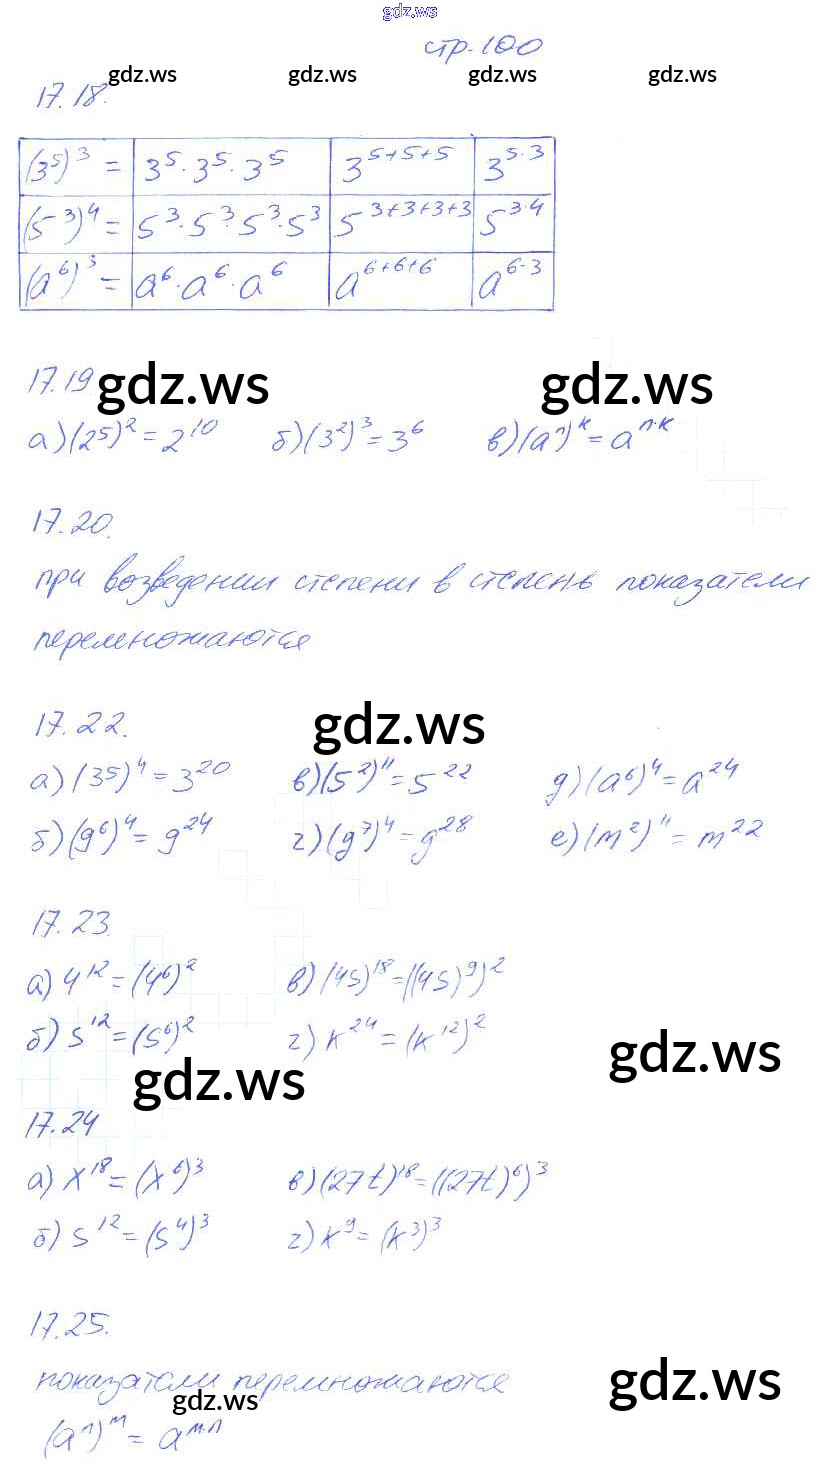 gdz.ws
стр. 100
gdz.ws gdz.ws gdz.ws
17.18.
(3⁵)³ = 3⁵·3⁵·3⁵ 3⁵⁺⁵⁺⁵ 3⁵·³
(5³)⁴ = 5³·5³·5³·5³ 5³⁺³⁺³⁺³ 5³·⁴
(a⁶)³ = a⁶·a⁶·a⁶ a⁶⁺⁶⁺⁶ a⁶·³
17.19 gdz.ws gdz.ws
а) (2⁵)² = 2¹⁰ б) (3²)³ = 3⁶ в) (aⁿ)ᵏ = aⁿ·ᵏ
17.20.
при возведении степени в степень показатели
перемножаются
17.22. gdz.ws
а) (3⁵)⁴ = 3²⁰ в) (5²)¹¹ = 5²² д) (a⁶)⁴ = a²⁴
б) (g⁶)⁴ = g²⁴ г) (g⁷)⁴ = g²⁸ е) (m²)¹¹ = m²²
17.23.
а) 4¹² = (4⁶)² в) (4s)¹⁸ = ((4s)⁹)²
б) s¹² = (s⁶)² г) k²⁴ = (k¹²)² gdz.ws
gdz.ws
17.24
а) x¹⁸ = (x⁶)³ в) (27t)¹⁸ = ((27t)⁶)³
б) s¹² = (s⁴)³ г) k⁹ = (k³)³
17.25.
показатели перемножаются gdz.ws
gdz.ws
(aⁿ)ᵐ = aᵐ·ⁿ